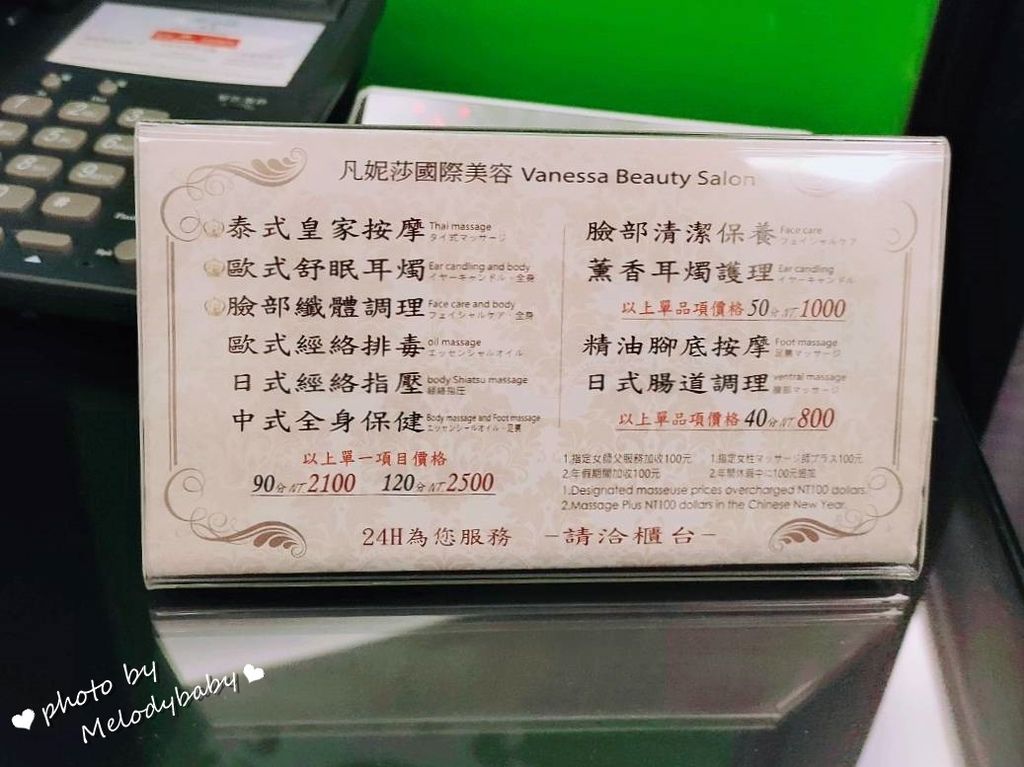 凡妮莎國際美容 Vanessa Beauty Salon
泰式皇家按摩 Thai massage
タイ式マッサージ
歐式舒眠耳燭 Ear candling and body
イヤーキャンドル・全身
臉部纖體調理 Face care and body
フェイシャルケア・全身
歐式經絡排毒 oil massage
エッセンシャルオイル
日式經絡指壓 body Shiatsu massage
経絡指圧
中式全身保健 Body massage and Foot massage
エッセンシャルオイル・足裏
以上單一項目價格
90分NT2100 120分NT2500
臉部清潔保養 Face care
フェイシャルケア
薰香耳燭護理 Ear candling
イヤーキャンドル
以上單品項價格50分NT1000
精油腳底按摩 Foot massage
足裏マッサージ
日式腸道調理 ventral massage
腹部マッサージ
以上單品項價格40分NT800
1.指定女師父服務加收100元 1.指定女性マッサージ師プラス100元
2.年假期間加收100元 2.年間休暇中に100元追加
1.Designated masseuse prices overcharged NT100 dollars.
2.Massage Plus NT100 dollars in the Chinese New Year.
24H為您服務 -請洽櫃台-
photo by
Melodybaby